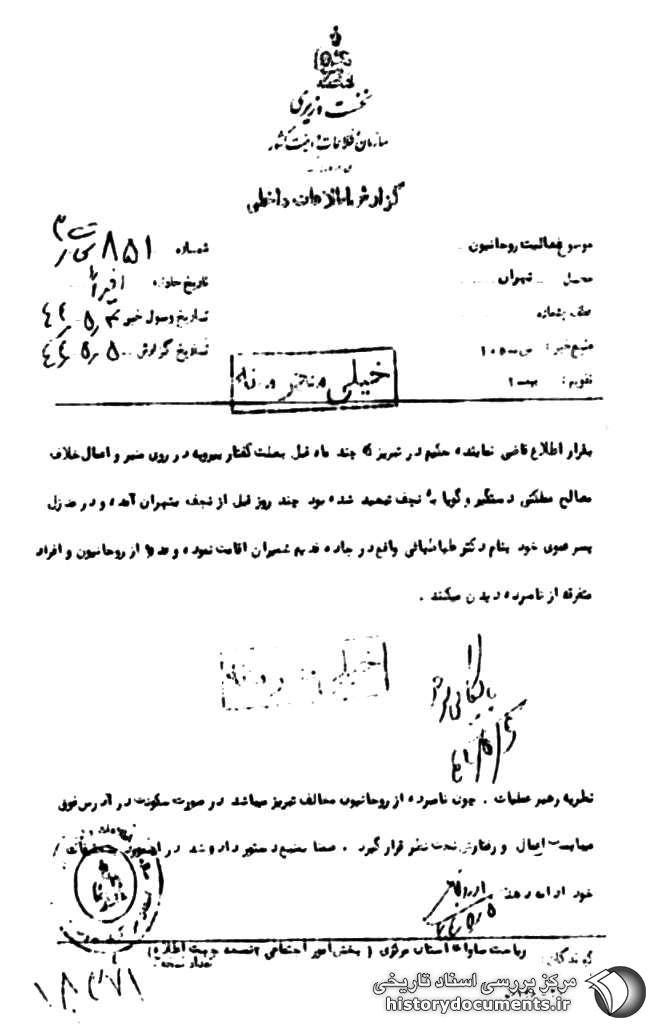 نخست وزیری
سازمان اطلاعات و امنیت کشور
گزارش اطلاعات داخلی
موضوع فعالیت روحانیون
شماره ۸۵۱
محل تهران
تاریخ حادثه اخیراً
عطف بشماره
تاریخ وصول خبر ۴۴٫۵٫۴
منبع خبر :
تاریخ گزارش ۴۴٫۵٫۵
تقویم : ب-۲
خیلی محرمانه
بقرار اطلاع قاضی نماینده حکیم در تبریز که چند ماه قبل بعلت گفتار بیرویه در روی منبر و اعمال خلاف
مصالح مملکتی دستگیر و گویا به نجف تبعید شده بود چند روز قبل از نجف بتهران آمده و در منزل
پسر عموی خود بنام دکتر طباطبائی واقع در جاده قدیم شمیران اقامت نموده و عده‌ای از روحانیون و افراد
متفرقه از نامبرده دیدن میکنند .
خیلی محرمانه
نظریه رهبر عملیات . چون نامبرده از روحانیون مخالف تبریز میباشد در صورت سکونت در آدرس فوق
میبایست اعمال و رفتارش تحت نظر قرار گیرد . ضمنا بمنبع دستور داده شد در اینمورد بتحقیقات
خود ادامه دهد
۴۴٫۵٫۵
گیرندگان :
ریاست ساواک استان مرکزی ( بخش امور اجتماعی ۲ نسخه جهت اطلاع )
تعداد نسخه :
مرکز بررسی اسناد تاریخی
historydocuments.ir